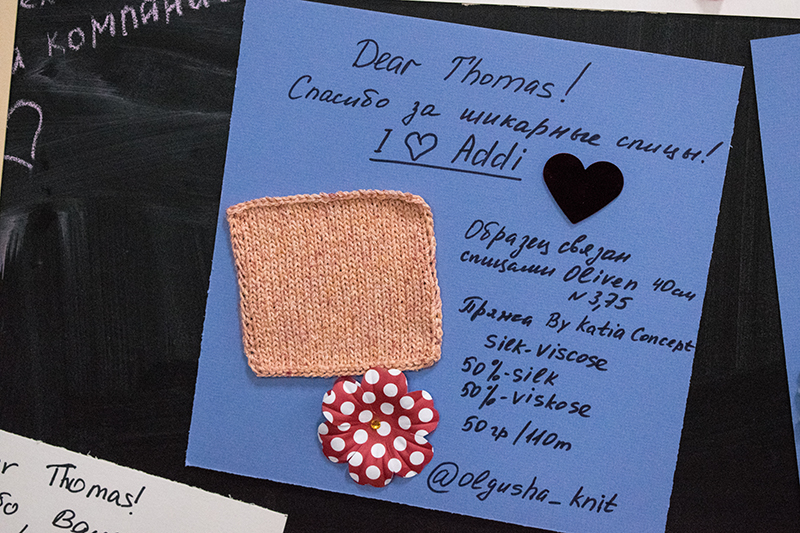 компани
Dear Thomas!
Спасибо за шикарные спицы!
I ♡ Addi
Образец связан
спицами Oliven 40см
N 3,75
Пряжа By Katia Concept
Silk-Viscose
50%-silk
50%-viskose
50гр/110m
@olgusha_knit
Thomas!